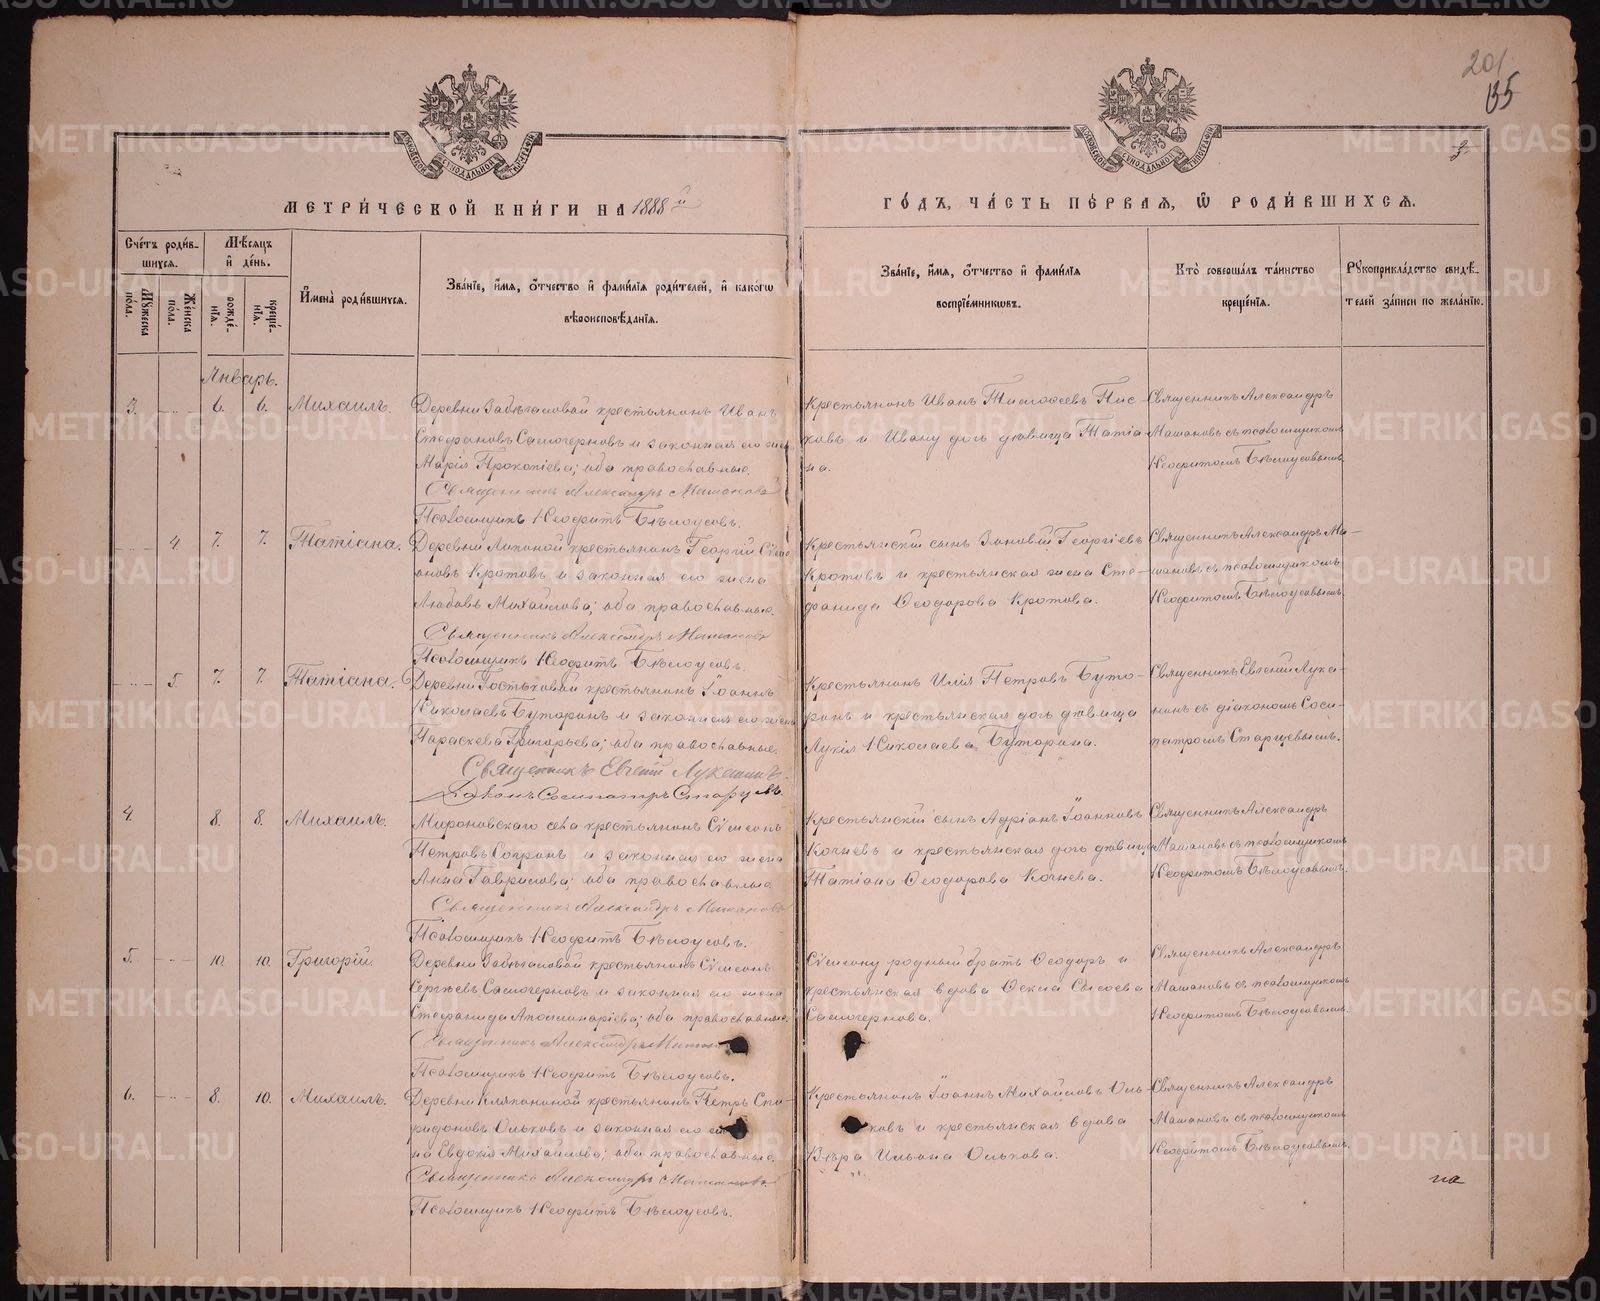 201
135
3
МЕТРИ́ЧЕСКОЙ КНИ́ГИ НА 1888й
ГО́ДЪ, ЧА́СТЬ ПЕ́РВАЯ, Ѡ РОДИ́ВШИХСЯ.
Сче́тъ роди́в-
шихся.
Мꙋжеска
по́ла.
Же́нска
по́ла.
Мѣ́сяцъ
и҆ де́нь.
рожде́-
нїя.
креще́-
нїя.
И҆мена̀ роди́вшихся.
Зва́нїе, и҆́мя, ѻ҆́тчество и҆ фами́лїя роди́телей, и҆ како́гѡ
вѣроисповѣ́данїя.
Зва́нїе, и҆́мя, ѻ҆́тчество и҆ фами́лїя
воспрїе́мникѡвъ.
Кто̀ соверша́лъ та́инство
креще́нїя.
Рꙋкоприкла́дство свидѣ́-
телей за́писи по жела́нїю.
Январь.
3.
6.
6.
Михаилъ.
Деревни Забѣгаловой крестьянинъ Иванъ
Стефановъ Самочерновъ и законная его жена
Марія Прокопіева; оба православные.
Священникъ Александръ Машановъ
Псаломщикъ Неофитъ Бѣлоусовъ.
Крестьянинъ Иванъ
ковъ и Ивану дочь дѣвица Татіа-
на.
Священникъ Александръ
Машановъ съ псаломщикомъ
Неофитомъ Бѣлоусовымъ.
4
7.
7.
Татіана.
Деревни Липиной крестьянинъ Георгій Сѵме-
оновъ Кротовъ и законная его жена
Любовь Михайлова; оба православные.
Священникъ Александръ Машановъ
Псаломщикъ Неофитъ Бѣлоусовъ.
Крестьянскій сынъ Зиновій Георгіевъ
Кротовъ и крестьянская жена Сте-
фанида Ѳеодорова Кротова.
Священникъ Александръ Ма-
шановъ съ псаломщикомъ
Неофитомъ Бѣлоусовымъ.
5.
7.
7.
Татіана.
Деревни Гостьковой крестьянинъ Іоаннъ
Николаевъ Буторинъ и законная его жена
Параскева Григорьева; оба православные.
Священникъ Евгеній Луканинъ.
Діаконъ Сосипатръ Старцевъ.
Крестьянинъ Илія Петровъ Буто-
ринъ и крестьянская дочь дѣвица
Лукія Николаева Буторина.
Священникъ Евгеній Лука-
нинъ съ діакономъ Соси-
патромъ Старцевымъ.
4.
8.
8.
Михаилъ.
Мироновскаго села крестьянинъ Сѵмеонъ
Петровъ Согринъ и законная его жена
Анна Гаврилова; оба православные
Священникъ Александръ Машановъ
Псаломщикъ Неофитъ Бѣлоусовъ.
Крестьянскій сынъ Адріанъ Іоанновъ
Кочневъ и крестьянская дочь дѣвица
Татіана Ѳеодорова Кочнева.
Священникъ Александръ
Машановъ съ псаломщикомъ
Неофитомъ Бѣлоусовымъ.
5.
10.
10.
Григорій.
Деревни Забѣгаловой крестьянинъ Сѵмеонъ
Сергѣевъ Самочерновъ и законная его жена
Стефанида Аполинаріева; оба православные.
Священникъ Александръ
Псаломщикъ Неофитъ Бѣлоусовъ.
Сѵмеону родный братъ Ѳеодоръ и
крестьянская вдова Ѳекла Сысоева
Самочернова.
Священникъ Александръ
Машановъ съ псаломщикомъ
Неофитомъ Бѣлоусовымъ.
6.
8.
10.
Михаилъ.
Деревни Кляпиной крестьянинъ Петръ Спи-
ридоновъ Ольковъ и законная его
на Евдокія Михайлова; оба православные.
Священникъ Александръ Машановъ.
Псаломщикъ Неофитъ Бѣлоусовъ.
Крестьянинъ Іоаннъ Михайловъ Оль-
ковъ и крестьянская вдова
Вѣра Ильина Олькова.
Священникъ Александръ
Машановъ съ псаломщикомъ
Неофитомъ Бѣлоусовымъ.
на
METRIKI.GASO-URAL.RU